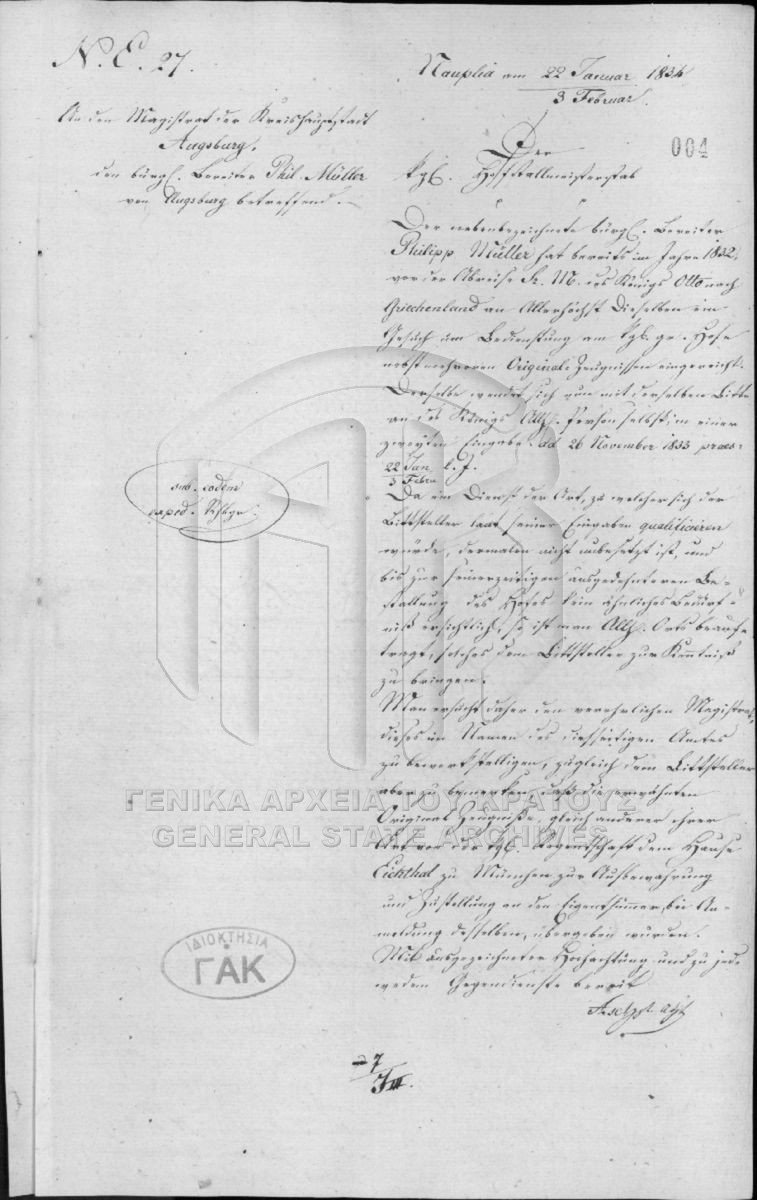 N. E. 27.
Nauplia am 22 Januar 1834
3 Februar.
An den Magistrat der Kreishauptstadt
Augsburg,
den bürgl. Bereiter Phil. Müller
von Augsburg betreffend.
004
Der
kgl. Hofstallmeisterstab
Der nebenbezeichnete bürgl. Bereiter
Philipp Müller hat bereits im Jahre 1832,
vor der Abreise Sr. M. des Königs Otto nach
Griechenland an Allerhöchst Dieselben ein
Gesuch um Bedienstung am kgl. gr. Hofe
nebst mehreren Original-Zeugnissen eingereicht.
Derselbe wendet sich nun mit derselben Bitte
an des Königs Allh. Person selbst, in einer
zweyten Eingabe dd 26 November 1833 praes:
22 Jan. l. J.
3 Febru
Da ein Dienst der Art, zu welcher sich der
Bittsteller laut seiner Eingaben qualificieren
würde, dermalen nicht unbesetzt ist, und
bis zur seinerzeitigen ausgedehnteren Be-
stallung des Hofes kein ähnliches Bedürf-
niß ersichtlich, so ist man Allh. Orts beauf-
tragt, solches dem Bittsteller zur Kenntniß
zu bringen.
Man ersucht daher den verehrlichen Magistrat,
dieses im Namen des diesseitigen Amtes
zu bewerkstelligen, zugleich dem Bittsteller
aber zu bemerken, daß die erwähnten
Original Zeugniße, gleich anderer ihrer
Art vor der kgl. Regentschaft dem Hause
Eichthal zu München zur Aufbewahrung
und Zustellung an den Eigenthümer, bei An-
meldung desselben, übergeben wurden.
Mit ausgezeichneter Hochachtung und zu jed-
wedem Gegendienste bereit
sub. eodem
exped.
ΓΕΝΙΚΑ ΑΡΧΕΙΑ ΤΟΥ ΚΡΑΤΟΥΣ
GENERAL STATE ARCHIVES
ΙΔΙΟΚΤΗΣΙΑ
ΓΑΚ
7